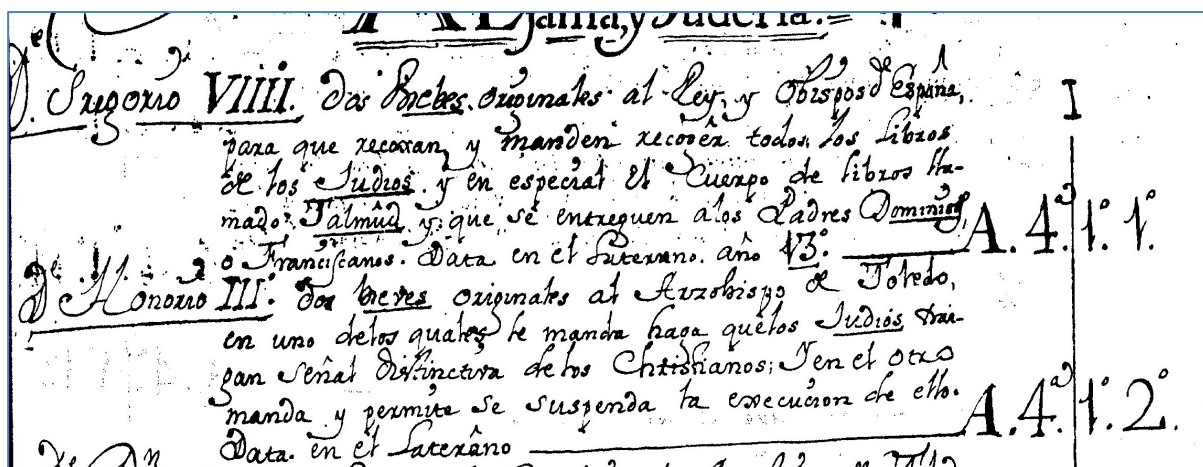 Jama, y Juderia.
De Gregorio VIIII. dos brebes originales al Rey, y Obispos de España, I
para que recoxan, y manden recoger todos los libros
de los Judios y en especial el Cuerpo de libros lla-
mado Talmud y que se entreguen a los Padres Dominicos,
o Franciscanos. Data en el Laterano. año 13.º A. 4.ª 1.º 1.º
De Honorio III.º dos breves originales al Arzobispo de Toledo,
en uno delos quales le manda haga quelos Judios trai-
gan señal distinctiva delos Christianos; Y en el otro
manda y permite se suspenda la execucion de ello.
Data en el Laterano A. 4.ª 1.º 2.º